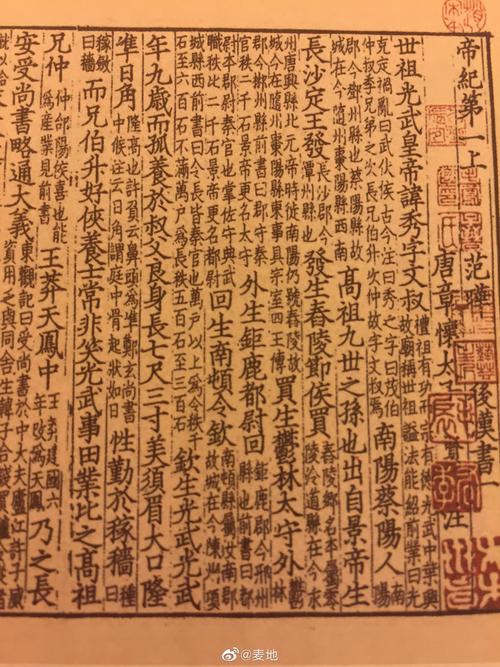 帝紀第一上 范曄 後漢書一
唐章懷太子賢注
世祖光武皇帝諱秀字文叔 禮祖有功而宗有德光武中葉興故廟稱世祖謚法能紹前業曰光
克定禍亂曰武伏侯古今注曰秀之字曰茂伯仲叔季兄弟之次長兄伯升次仲故字文叔焉 南陽蔡陽人 南陽
郡今鄧州縣也蔡陽縣故城在今隨州棗陽縣西南 高祖九世之孫也出自景帝生
長沙定王發 長沙郡今潭州縣也 發生舂陵節侯買 舂陵鄉名本屬零陵泠道縣在今永
州唐興縣北元帝時徙南陽仍號舂陵故城今在隨州棗陽縣東事具宗室四王傳 買生鬱林太守外 鬱林
郡今郴州縣前書曰郡守秦官秩二千石景帝更名太守 外生鉅鹿都尉回 鉅鹿郡今邢州縣也前書曰都
尉本郡尉秦官也掌佐守典武職秩比二千石景帝更名都尉 回生南頓令欽 南頓縣屬汝南郡故城在今陳州項
城縣西前書曰令長皆秦官也萬戶以上為令秩千石至六百石不滿萬戶為長秩五百石至三百石 欽生光武光武
年九歲而孤養於叔父良身長七尺三寸美須眉大口隆
準日角 隆高也許負云鼻頭為準鄭玄尚書中候注云日角謂庭中骨起狀如日 性勤於稼穡 種曰
稼斂曰穡 而兄伯升好俠養士常非笑光武事田業比之高祖
兄仲 仲郃陽侯喜也能為產業見前書 王莽天鳳中 王莽建國六年改為天鳳 乃之長
安受尚書略通大義 東觀記曰受尚書於中大夫廬江許子威資用乏與同舍生韓子合錢買
@麦地